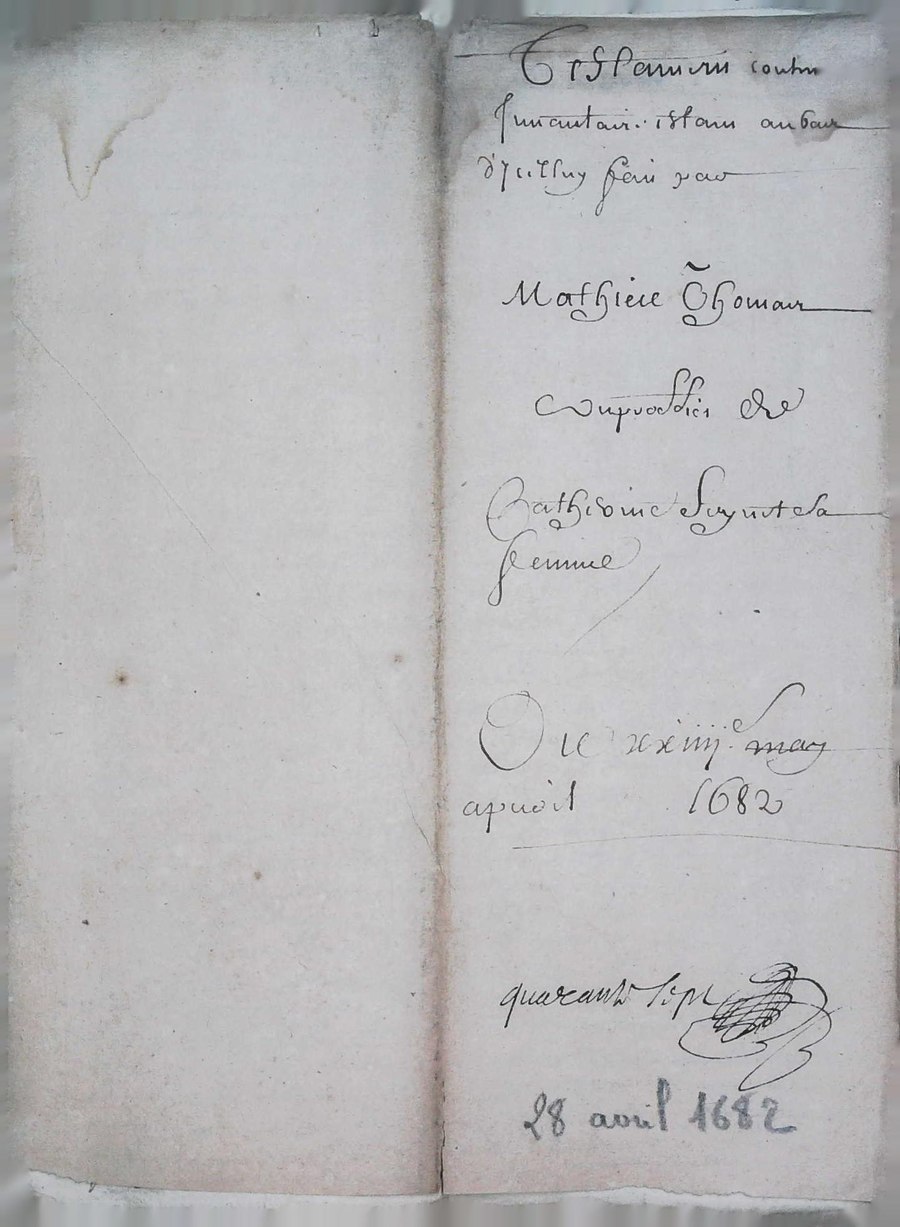 Testament contre
Inuantair. estant au bas
d'Icelluy fait par
Mathieu Thomas
au proffict de
Catherine sa
femme
Du xxiiij.e may
apvril 1682
quarante sept
28 avril 1682